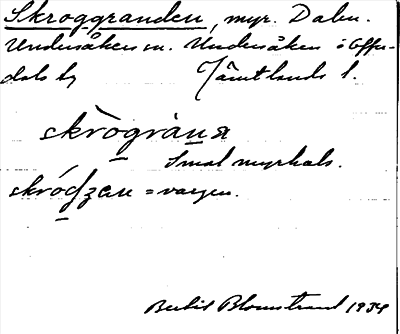 Skroggranden, myr. Dalen.
Undersåkers sn. Undersåkers o Offer-
dals tg Jämtlands l.
skròogràna
Smal myrhals.
skródzen = vargen.
Bertil Blomstrand 1934